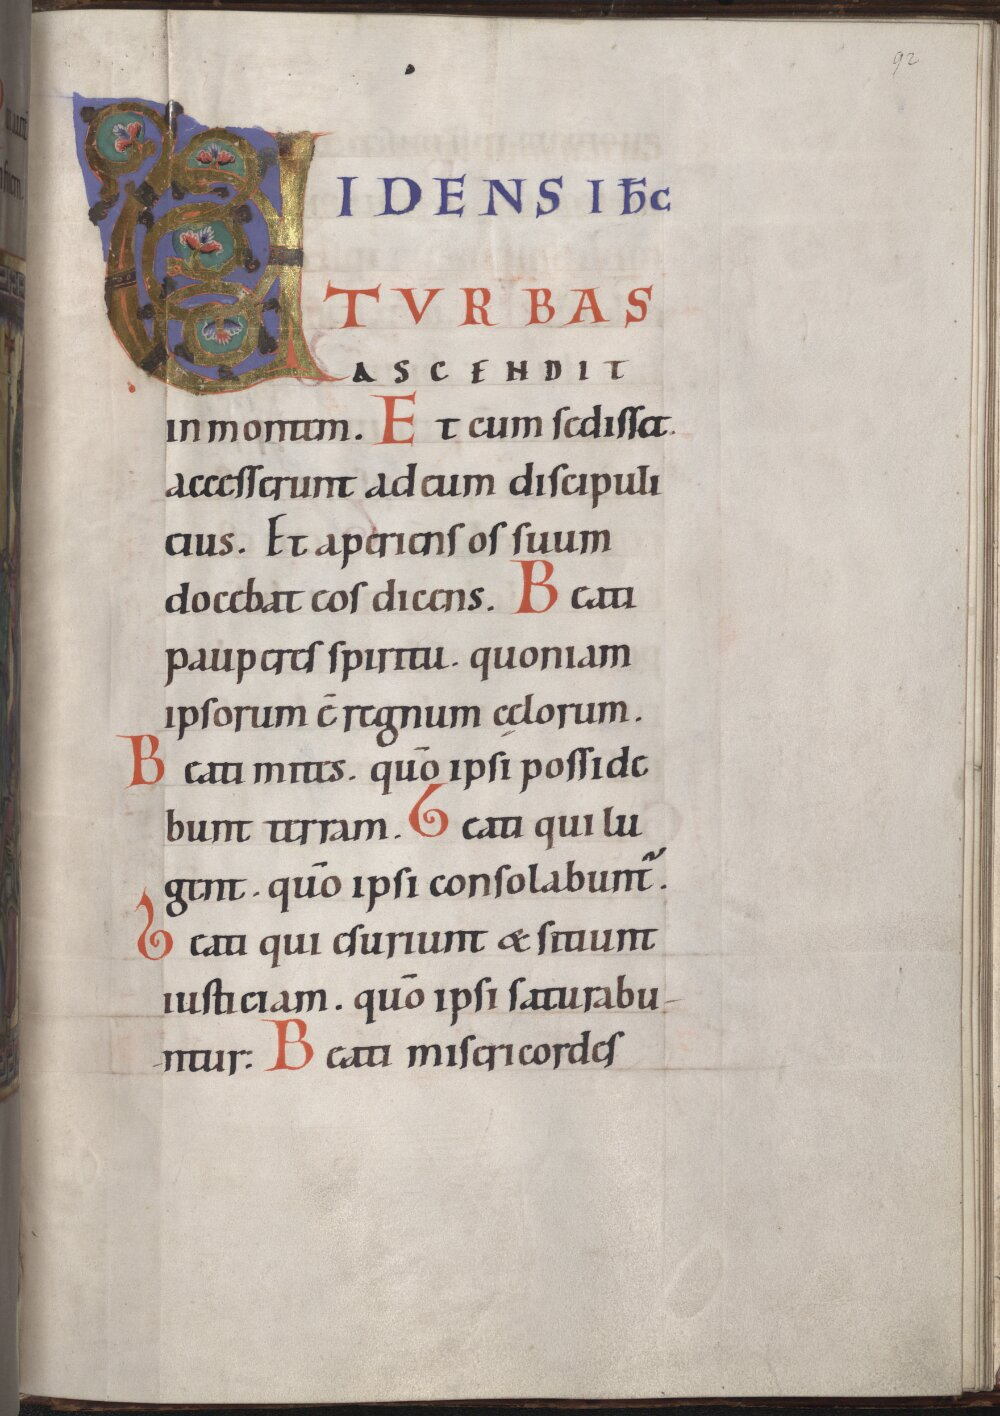 92
VIDENS IħC
TVRBAS
ASCENDIT
in montem. Et cum sedisset.
accesserunt ad eum discipuli
eius. Et aperiens os suum
docebat eos dicens. Beati
pauperes spiritu. quoniam
ipsorum ē regnum cęlorum.
Beati mites. quō ipsi posside
bunt terram. Beati qui lu
gent. quō ipsi consolabunt᷑.
Beati qui esuriunt & sitiunt
iusticiam. quō ipsi saturabu-
-ntur: Beati misericordes